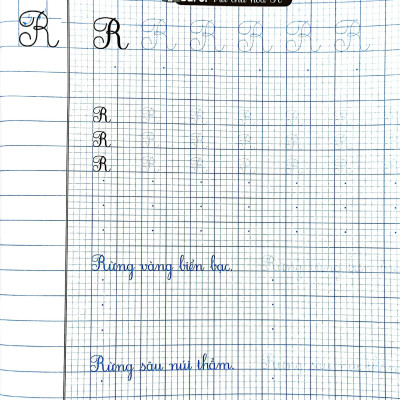 R R R R R R R
R R R R R R R
R R R R R R R
R R R R R R R
Rừng vàng biển bạc.
Rừng sâu núi thẳm.